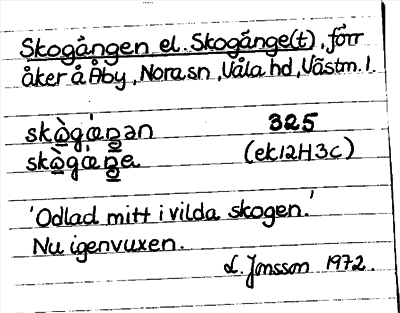 Skogången el. Skogånge(t), förr
åker å Åby, Nora sn, Våla hd, Västm. l.
skò̱gáŋən 325
skò̱gáŋe (ek 12H3c)
'Odlad mitt i vilda skogen.'
Nu igenvuxen.
L. Jonsson 1972.